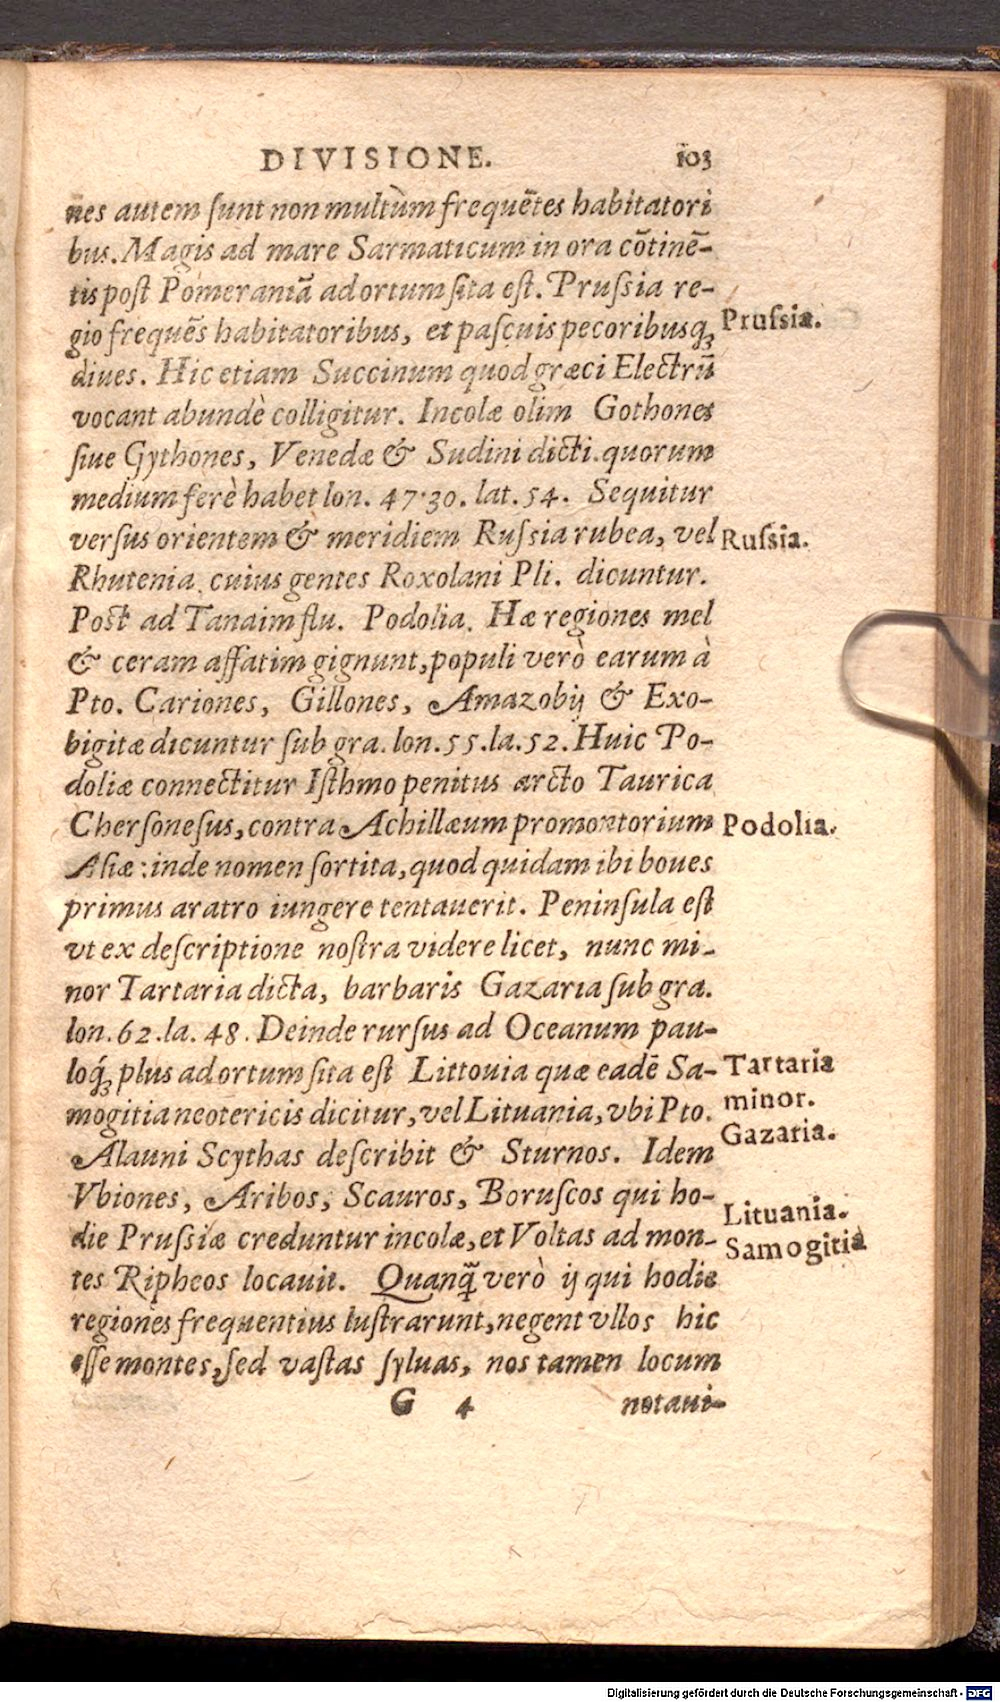 DIVISIONE. 103
nes autem ſunt non multùm frequẽtes habitatori
bus. Magis ad mare Sarmaticum in ora cõtinẽ-
tis poſt Pomeraniã ad ortum ſita eſt. Pruſsia re-
gio frequẽs habitatoribus, et paſcuis pecoribusq́;
Pruſsia.
diues. Hic etiam Succinum quod græci Electrũ
vocant abundè colligitur. Incolæ olim Gothones
ſiue Gythones, Venedæ & Sudini dicti. quorum
medium ferè habet lon. 47·30. lat. 54. Sequitur
verſus orientem & meridiem Ruſsia rubea, vel
Ruſsia.
Rhutenia, cuius gentes Roxolani Pli. dicuntur.
Poſt ad Tanaim flu. Podolia. Hæ regiones mel
& ceram affatim gignunt, populi verò earum à
Pto. Cariones, Gillones, Amazobij & Exo-
bigitæ dicuntur ſub gra. lon. 55. la. 52. Huic Po-
doliæ connectitur Iſthmo penitus arcto Taurica
Cherſoneſus, contra Achillæum promontorium
Podolia.
Aſiæ: inde nomen ſortita, quod quidam ibi boues
primus aratro iungere tentauerit. Peninſula eſt
vt ex deſcriptione noſtra videre licet, nunc mi-
nor Tartaria dicta, barbaris Gazaria ſub gra.
lon. 62. la. 48. Deinde rurſus ad Oceanum pau-
loq́; plus ad ortum ſita eſt Littouia quæ eadẽ Sa-
Tartaria
mogitia neotericis dicitur, vel Lituania, vbi Pto.
minor.
Gazaria.
Alauni Scythas deſcribit & Sturnos. Idem
Vbiones, Aribos, Scauros, Boruſcos qui ho-
Lituania.
die Pruſsiæ creduntur incolæ, et Voltas ad mon-
Samogitia
tes Ripheos locauit. Quanq̃ verò ij qui hodie
regiones frequentius luſtrarunt, negent vllos hic
eſſe montes, ſed vaſtas ſyluas, nos tamen locum
G 4 notaui-
Digitalisierung gefördert durch die Deutsche Forschungsgemeinschaft - DFG